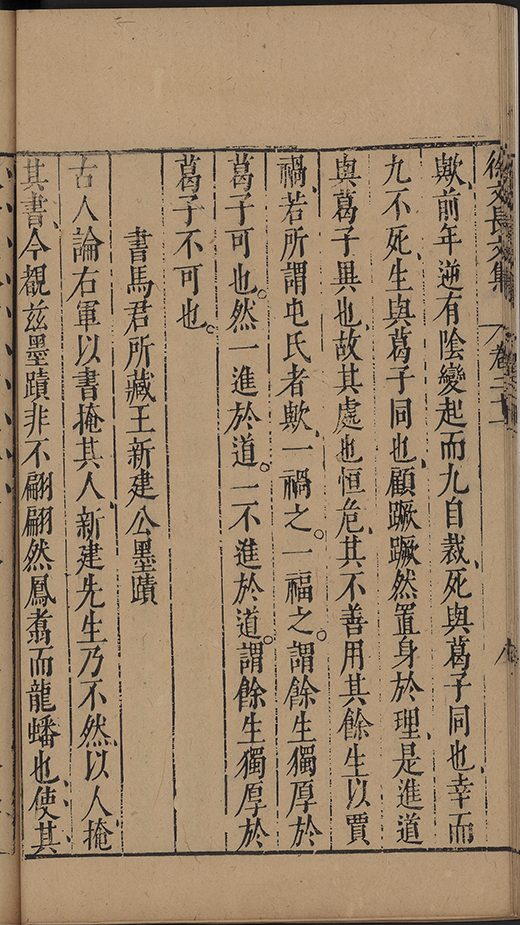 徐文長文集 卷二十
歟前年逆有陰變起而九自裁死與葛子同也幸而
九不死生與葛子同也顧蹶蹶然置身於理是進道
與葛子異也故其處也恒危其不善用其餘生以賈
禍若所謂屯氏者歟一禍之一福之謂餘生獨厚於
葛子可也然一進於道一不進於道謂餘生獨厚於
葛子不可也
書馬君所藏王新建公墨蹟
古人論右軍以書掩其人新建先生乃不然以人掩
其書今覩茲墨蹟非不翩翩然鳳翥而龍蟠也使其